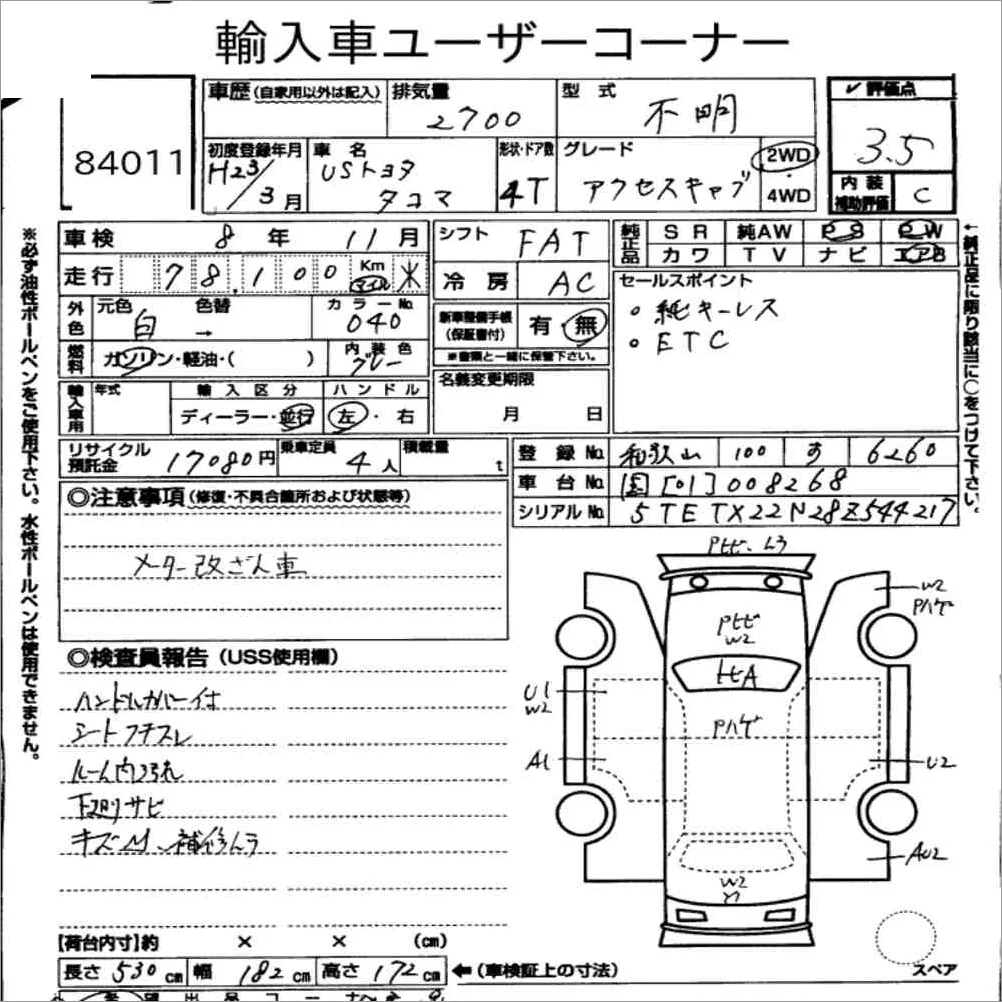 輸入車ユーザーコーナー
84011
車歴(自家用以外は記入) 排気量 2700 型式 不明 評価点 3.5
初度登録年月 H23/3月 車名 USトヨタ タコマ 形状・ドア数 4T グレード アクセスキャブ 2WD 4WD 内装補助評価 C
車検 8年 11月 シフト FAT 純正品 SR 純AW PS PW
走行 78,100 Km マイル 冷房 AC カワ TV ナビ エアB
外色 元色 白 色替 → カラーNo. 040 新車整備手帳(保証書付) 有・無 セールスポイント
・純キーレス
・ETC
燃料 ガソリン・軽油・( ) 内装色 グレー ※書類と一緒に保管下さい。
輸入車用 年式 輸入区分 ディーラー・並行 ハンドル 左・右 名義変更期限 月 日
リサイクル預託金 17080円 乗車定員 4人 積載量 t 登録No. 和歌山 100 す 6260
車台No. 国[01]008268
シリアルNo. 5TETX22N28Z544217
◎注意事項(修復・不具合箇所および状態等)
メーター改ざん車
◎検査員報告(USS使用欄)
ハンドルカバー付
シートフチスレ
ルーム内汚れ
下廻りサビ
キズ 補修ムラ
Pトビ・ムラ
W2
Pハゲ
Pトビ
W2
トビA
U1
W2
Pハゲ
A1
U2
AU2
W2
スペア
【荷台内寸】約 × × (cm)
長さ 530cm 幅 182cm 高さ 172cm ←(車検証上の寸法)
※必ず油性ボールペンをご使用下さい。水性ボールペンは使用できません。
←純正品に限り該当に○をつけて下さい。